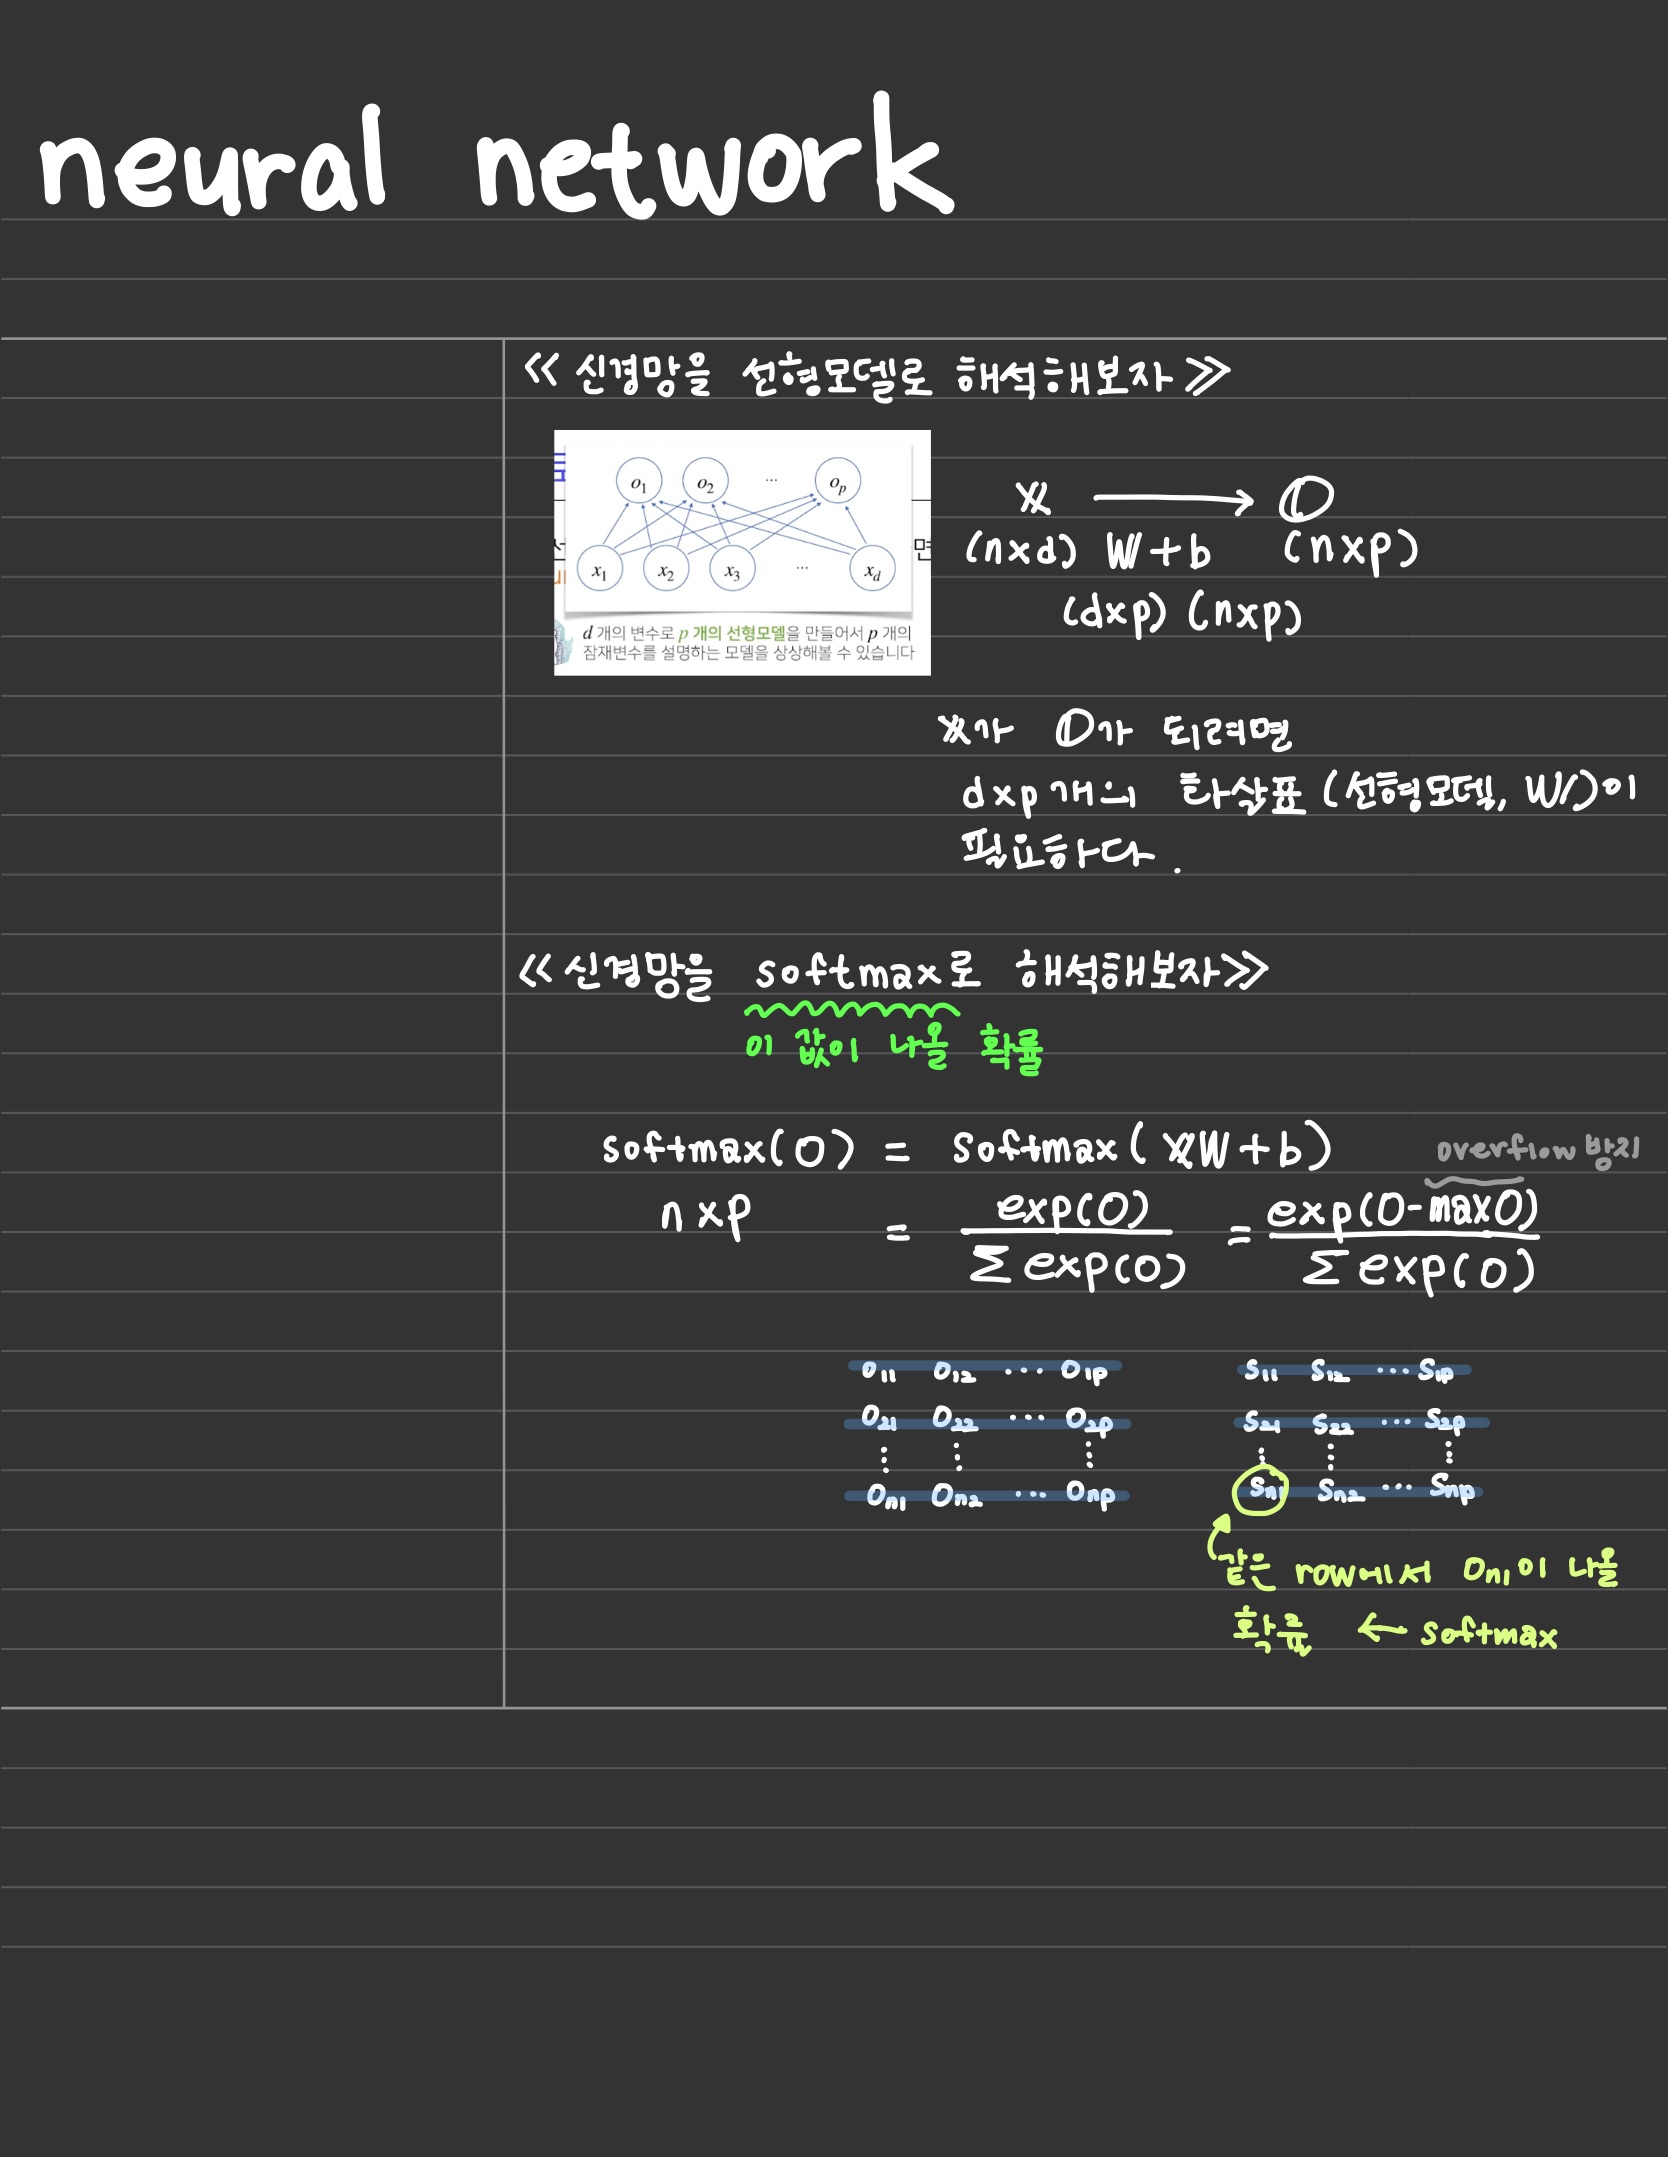 neural network
≪신경망을 선형모델로 해석해보자≫
o1 o2 ... op
x1 x2 x3 ... xd
d 개의 변수로 p 개의 선형모델을 만들어서 p 개의
잠재변수를 설명하는 모델을 상상해볼 수 있습니다
면
X → O
(n×d) W+b (n×p)
(d×p) (n×p)
X가 O가 되려면
d×p개의 화살표 (선형모델, W)이
필요하다.
≪신경망을 softmax로 해석해보자≫
이 값이 나올 확률
softmax(O) = softmax(XW+b)
overflow 방지
n×p = exp(O) / Σexp(O) = exp(O-maxO) / Σexp(O)
O11 O12 ... O1p S11 S12 ... S1p
O21 O22 ... O2p S21 S22 ... S2p
⋮ ⋮ ⋮ ⋮ ⋮ ⋮
On1 On2 ... Onp Sn1 Sn2 ... Snp
같은 row에서 On1이 나올
확률 ← softmax